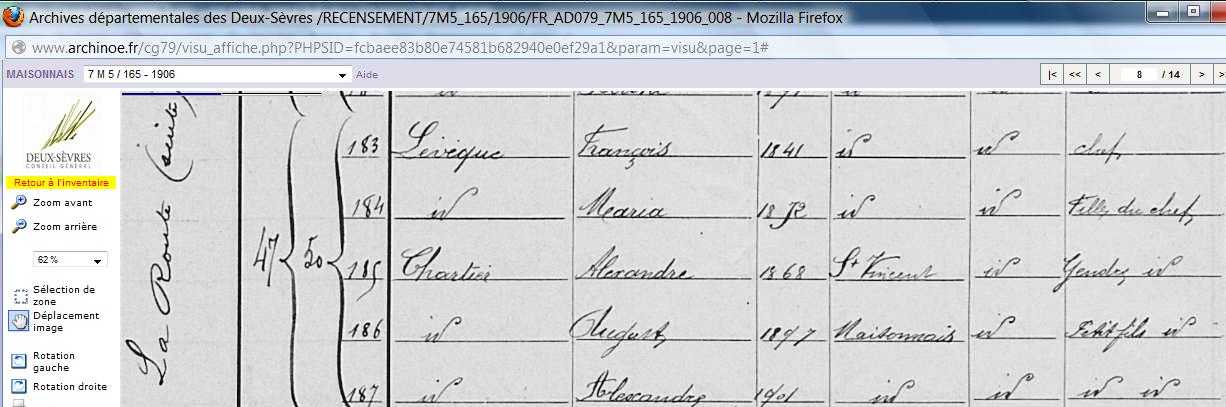 Archives départementales des Deux-Sèvres /RECENSEMENT/7M5_165/1906/FR_AD079_7M5_165_1906_008 - Mozilla Firefox
www.archinoe.fr/cg79/visu_affiche.php?PHPSID=fcbaee83b80e74581b682940e0ef29a1&param=visu&page=1#
MAISONNAIS 7 M 5 / 165 - 1906 Aide |< << < 8 / 14 >
DEUX-SÈVRES
CONSEIL GÉNÉRAL
Retour à l'inventaire
Zoom avant
Zoom arrière
62 %
Sélection de
zone
Déplacement
image
Rotation
gauche
Rotation droite
La Route (suite)
47 50
183 Lévêque François 1841 id id chef
184 id Maria 1872 id id Fille du chef
185 Chartier Alexandre 1868 St Vincent id Gendre id
186 id August 1897 Maisonnais id Petit fils id
187 id Alexandre 1901 id id id id